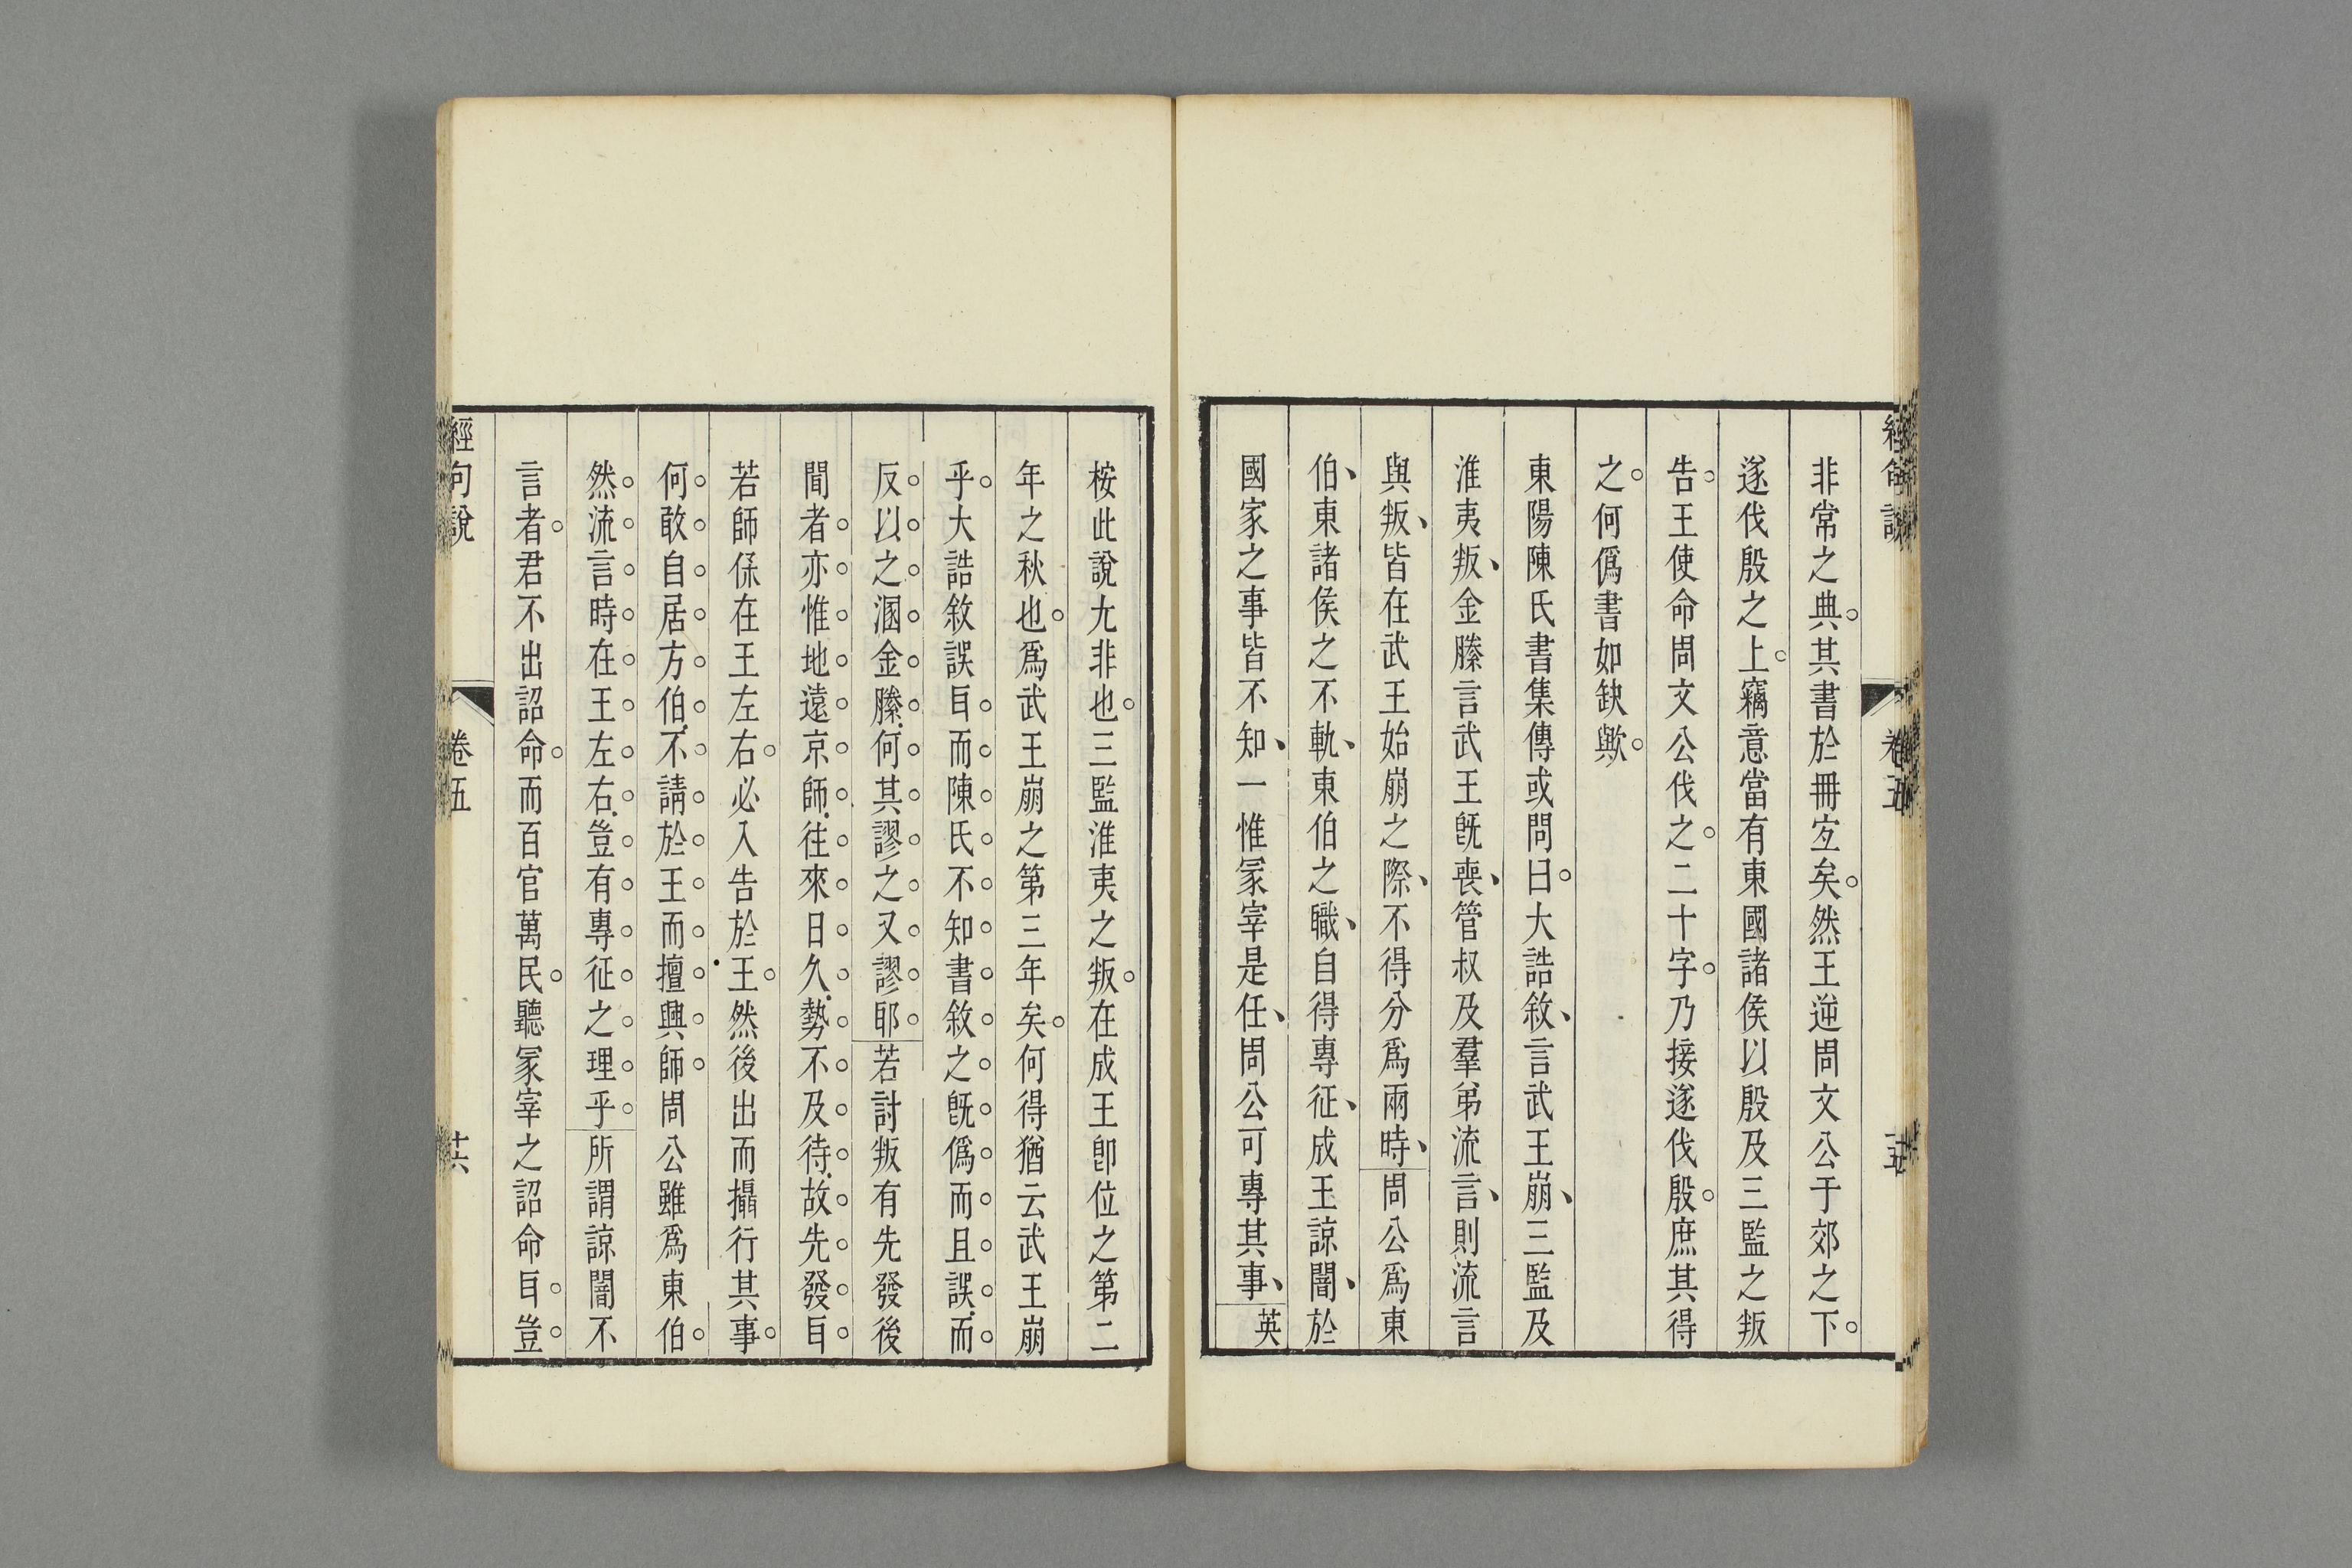 非常之典。其書於冊宐矣。然王逆周文公于郊之下。
遂伐殷之上。竊意當有東國諸侯以殷及三監之叛
告。王使命周文公伐之。二十字。乃接遂伐殷。庶其得
之。何僞書如缺歟。
東陽陳氏書集傳或問曰。大誥敘、言武王崩、三監及
淮夷叛、金縢言武王旣喪、管叔及羣弟流言、則流言
與叛、皆在武王始崩之際、不得分爲兩時、周公爲東
伯、東諸侯之不軌、東伯之職、自得專征、成王諒闇、於
國家之事皆不知、一惟冢宰是任、周公可專其事、英
桉此說尤非也。三監淮夷之叛。在成王卽位之第二
年之秋也。爲武王崩之第三年矣。何得猶云武王崩
乎。大誥敘誤耳。而陳氏不知書敘之旣僞而且誤。而
反以之溷金縢。何其謬之又謬耶。若討叛有先發後
聞者。亦惟地遠京師。往來日久。勢不及待。故先發耳。
若師保在王左右。必入告於王。然後出而攝行其事。
何敢自居方伯。不請於王而擅興師。周公雖爲東伯。
然流言時在王左右。豈有專征之理乎。所謂諒闇不
言者。君不出詔命。而百官萬民。聽冢宰之詔命耳。豈。
經句說
卷五
十六